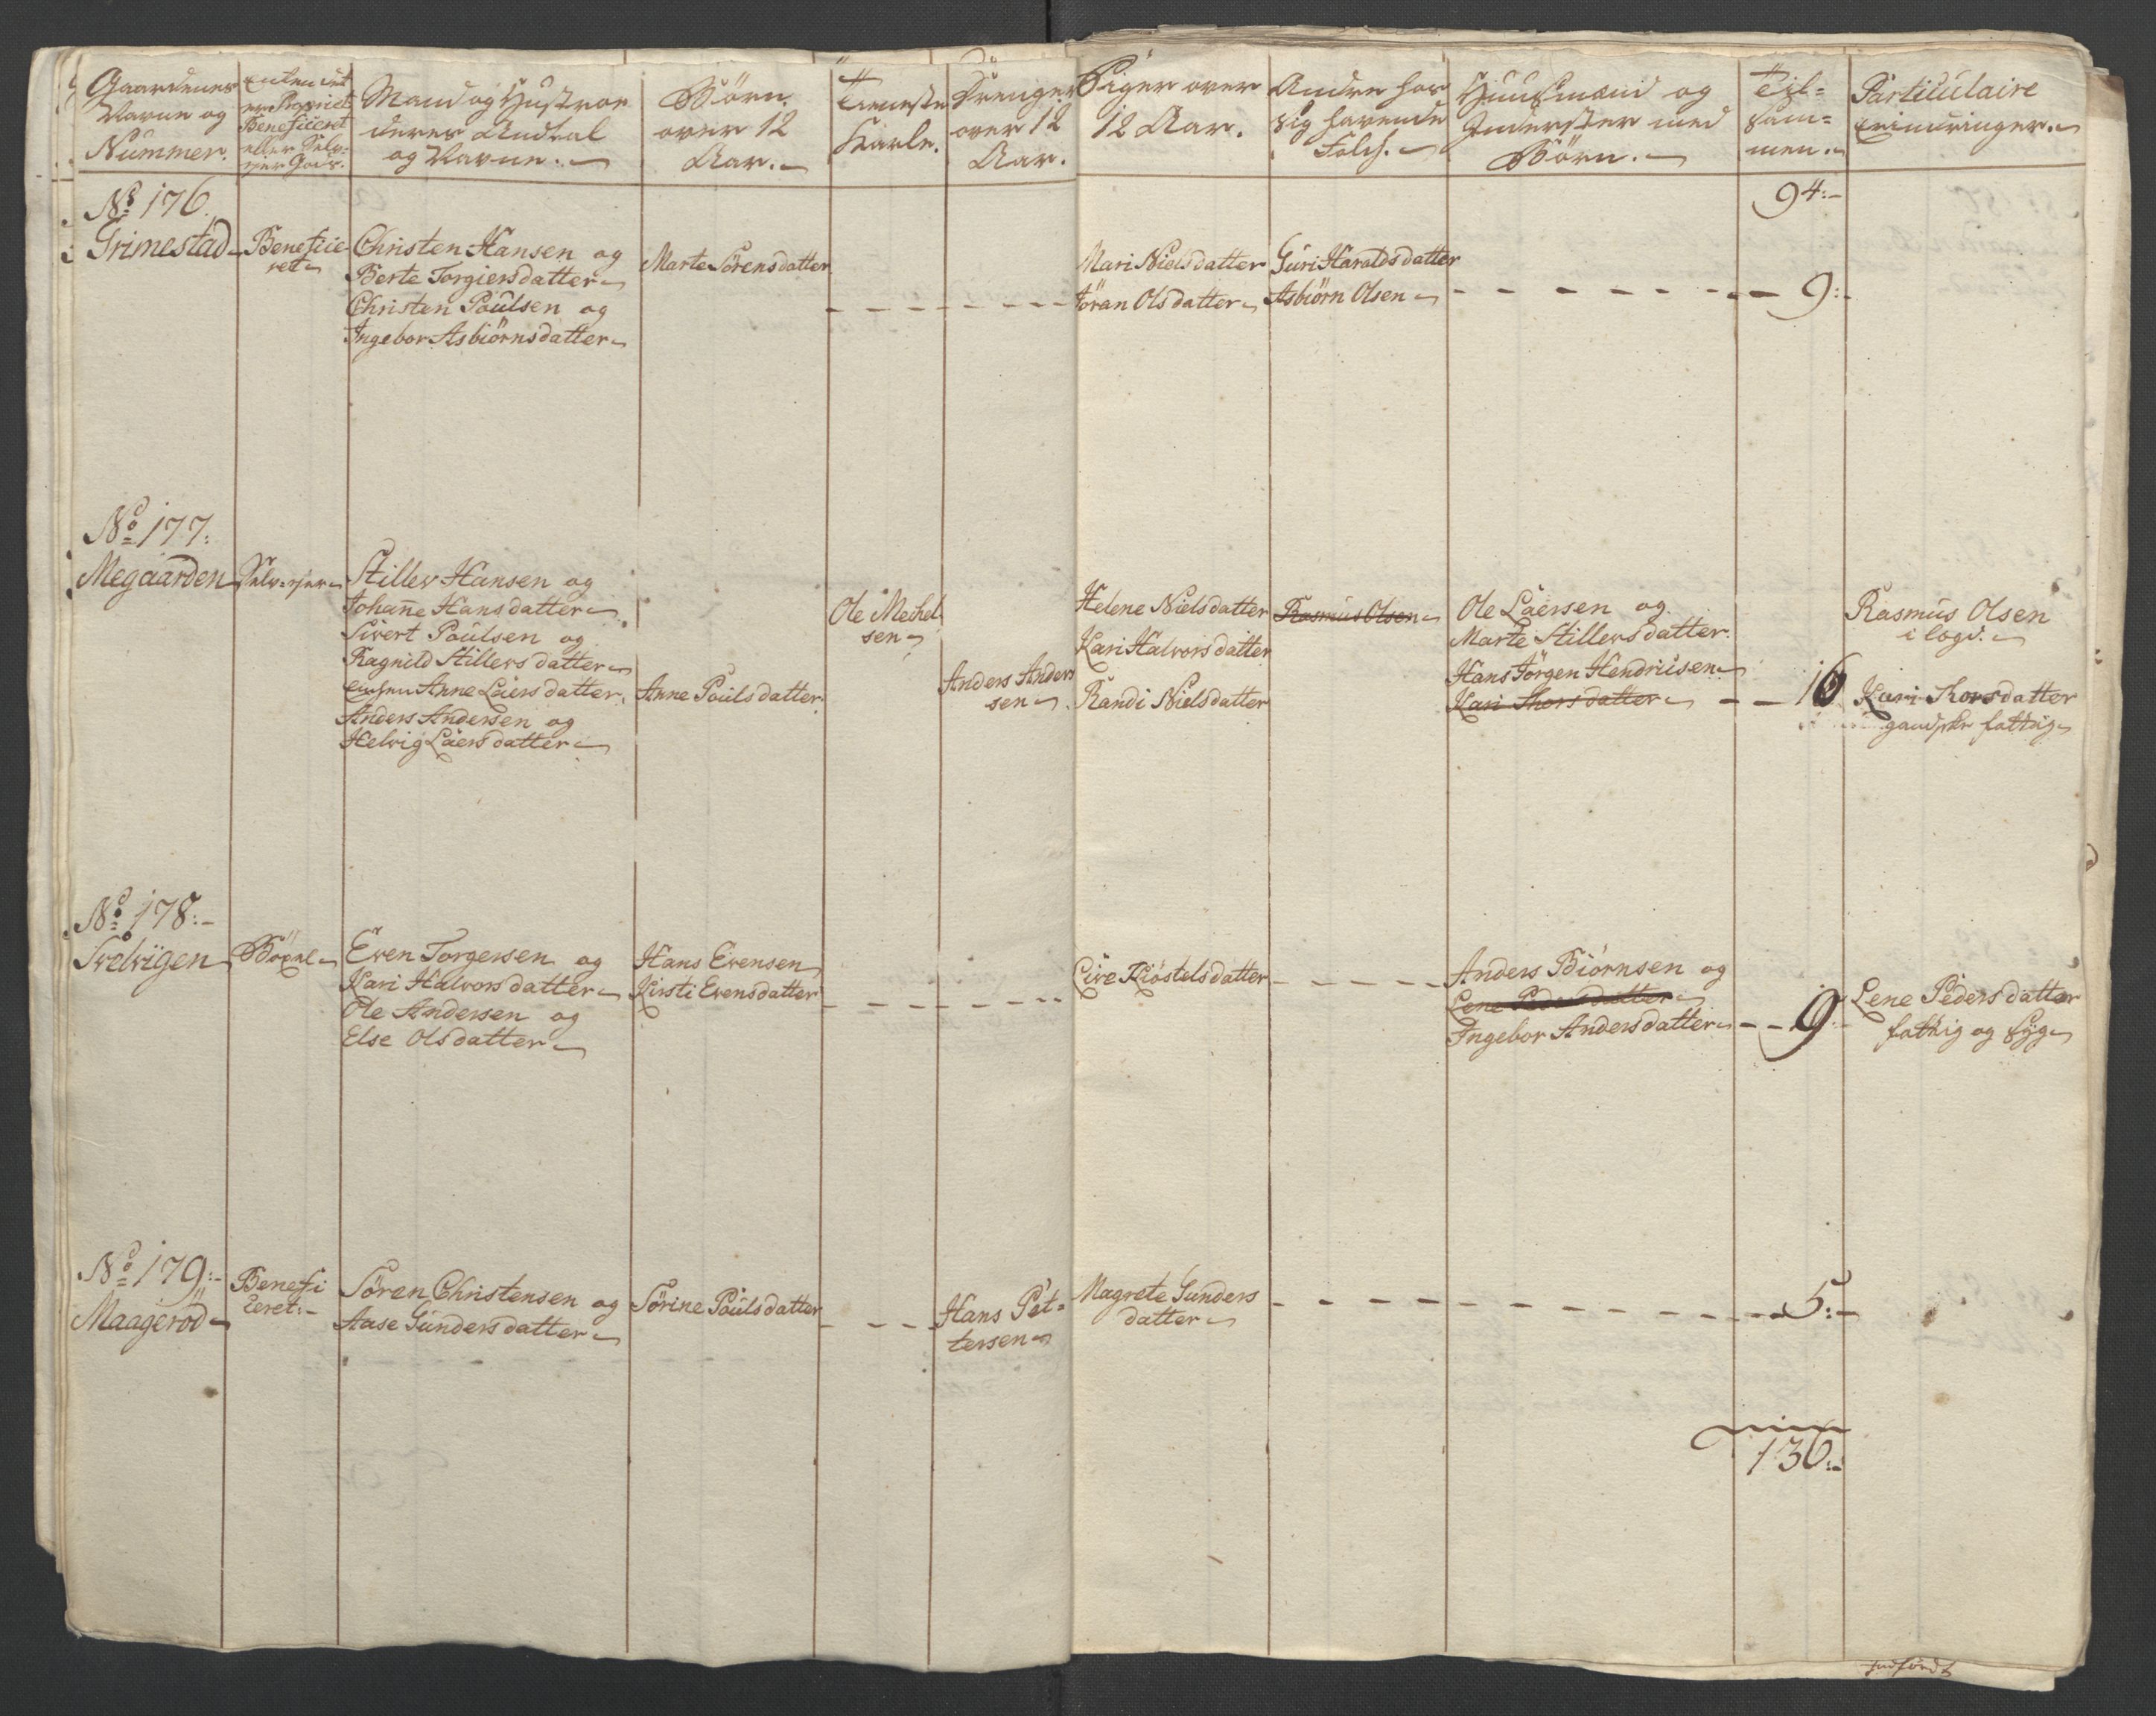 Gaardenes
Navne og
Nummer.
Enten det
er Propriet
Beneficeret
eller Selv-
ejer Gods.
Mand og Hustroe
deres Andtal
og Navne.
Börn
over 12
Aar.
Tieneste
Karle.
Drenge
over 12
Aar.
Piger over
12 Aar.
Andre hos
sig havende
Folch.
Huusmænd og
Inderster med
Börn.
Til-
sam-
men.
Particulaire
Erindringer.
94:-
No 176.
Grimestad
Beneficie
ret
Christen Hansen og
Berte Torgiersdatter
Christen Poulsen og
Ingebor Asbiörnsdatter
Marte Sörensdatter
Mari Nielsdatter
Jöran Olsdatter
Guri Haroldsdatter
Asbiörn Olsen
9:-
No 177:
Megaarden
Selv-ejer
Stiller Hansen og
Johanne Hansdatter
Sivert Poulsen og
Ragnild Stillersdatter
Enchen Anne Laersdatter
Anders Andersen og
Helvig Laersdatter
Anne Poulsdatter
Ole Mechel
sen
Anders Anders
sen
Helene Nielsdatter
Kari Halvorsdatter
Randi Nielsdatter
Rasmus Olsen
Ole Laersen og
Marte Stillersdatter
Hans Jörgen Hendriksen
Kari Thorsdatter
16
Rasmus Olsen
i logi.
Kari Thorsdatter
gandske fattig
No 178:-
Svelvigen
Even Torgersen og
Kari Halvorsdatter
Ole Andersen og
Else Olsdatter
Hans Evensen
Kirsti Evensdatter
Live Kiöstelsdatter
Anders Biörnsen og
Lene Pedersdatter
Ingebor Andersdatter
9
Lene Pedersdatter
fattig og syg
No 179:-
Maageröd
Benefi
ceret:-
Sören Christensen og
Aase Gundersdatter
Sörine Poulsdatter
Hans Pet-
tersen
Magrete Gunders
datter
5:-
136:-